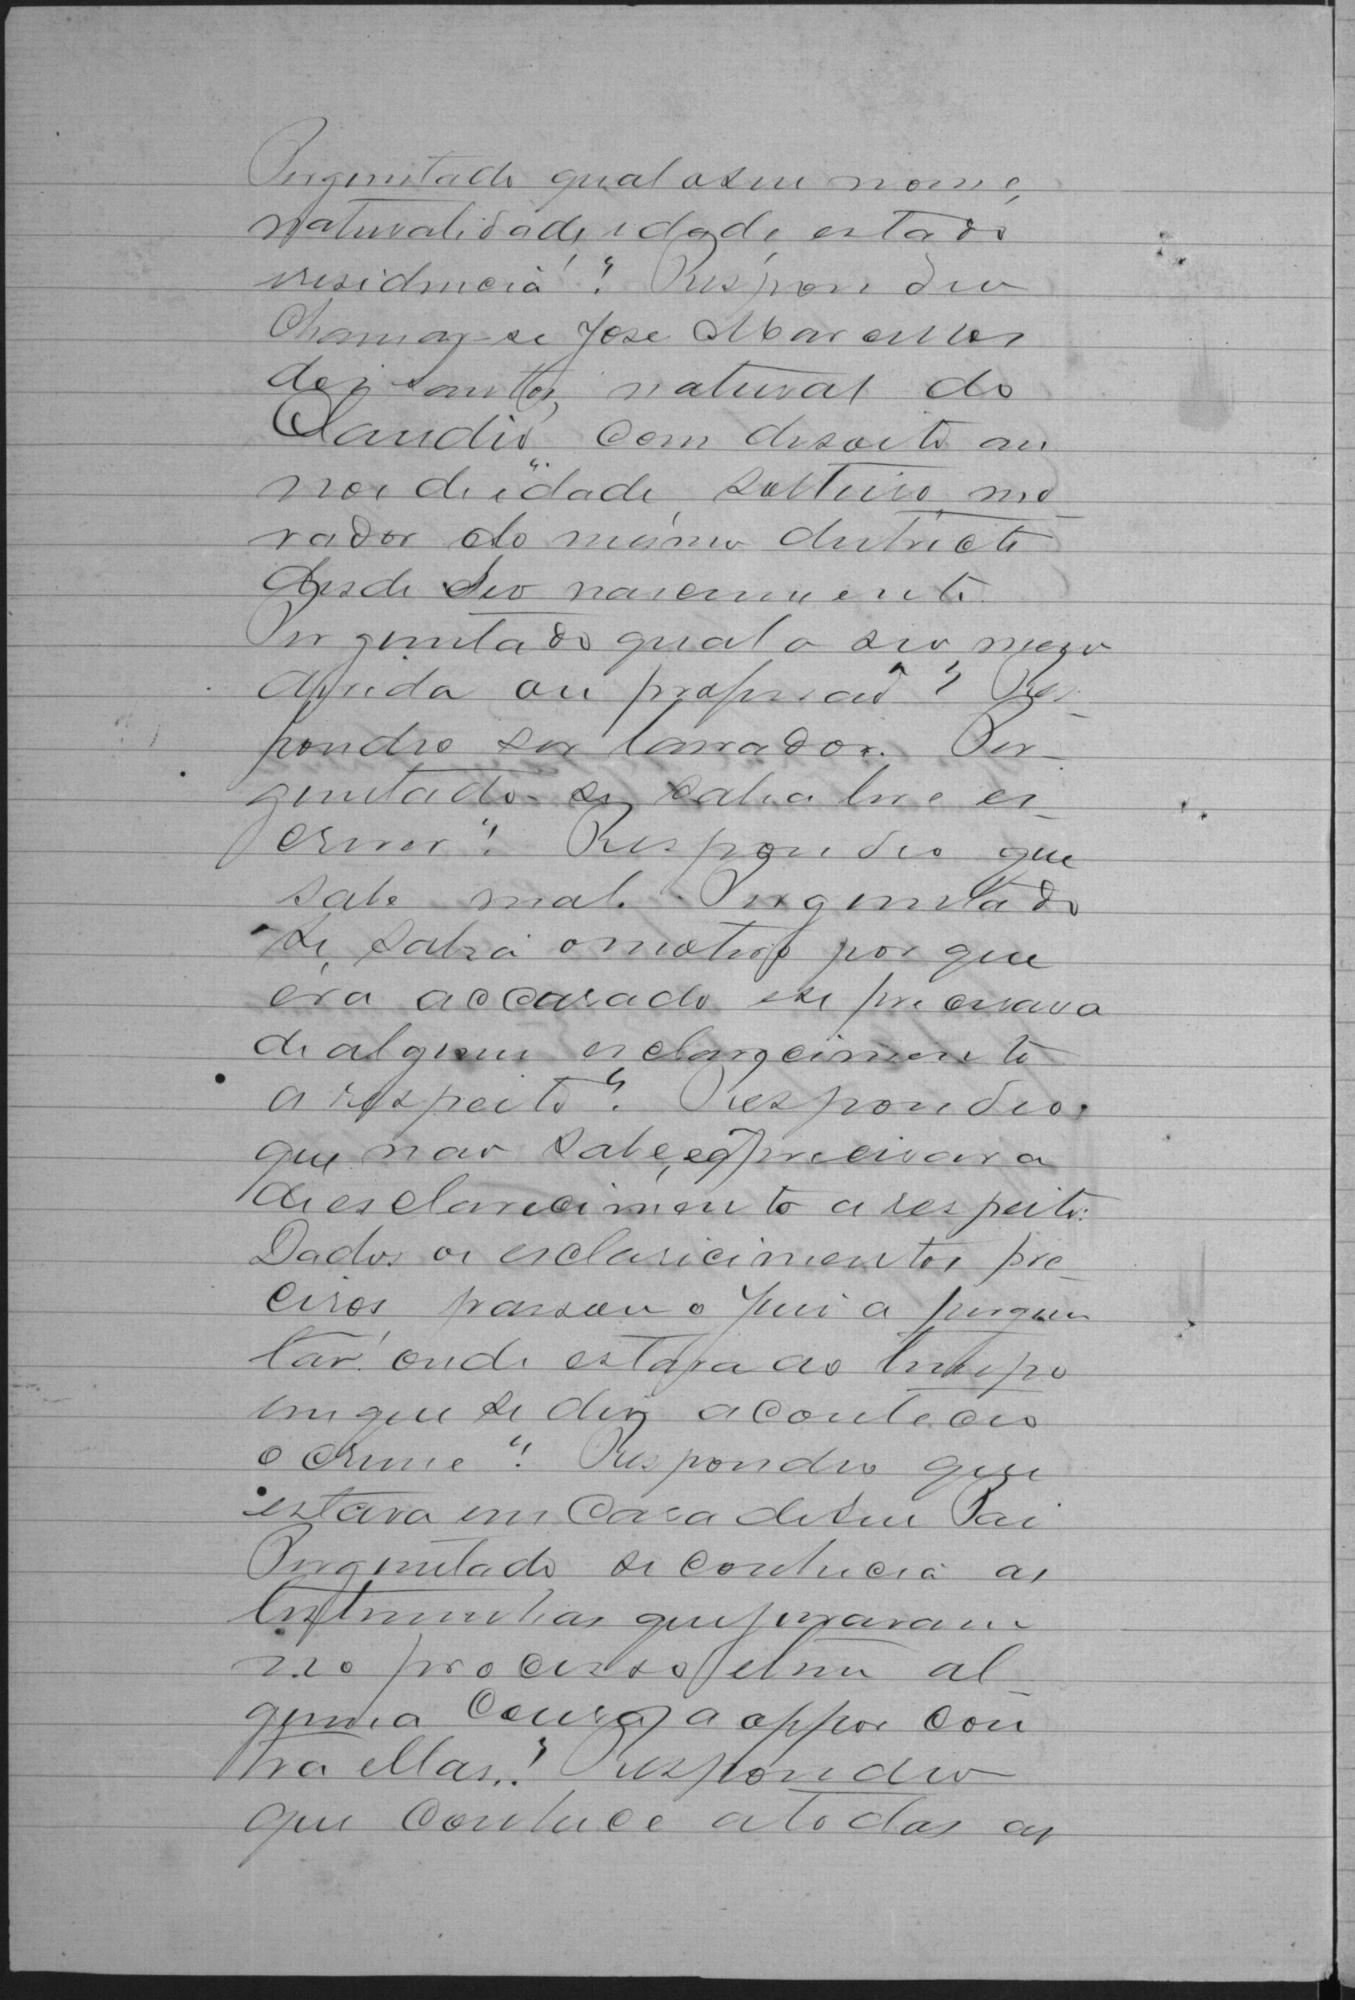 Perguntado qual o seu nome,
naturalidade, idade, estado
residencia? Respondeo
Chamar-se Jose Marcellos
dos santos, natural do
Claudio, com desoito an
nos de idade, solteiro, mo-
rador do mesmo districto
desde seo nascimento.
Perguntado qual o seo meio
de vida ou profissão? Res-
pondeo ser lavrador. Per-
guntado se sabia ler e es-
crever? Respondeo que
sabe mal. Perguntado
se, sabia o motivo por que
era accusado e se precisava
de algum esclarecimento
a respeito? Respondeo.
que não sabe, e q̃ precisava
de esclarecimento a respeito.
Dados os esclaricimentos pre-
cisos passou o Juis a pergun
tar: onde estava ao tempo
em que se diz aconteceo
o crime? Respondeo que
estava em casa de seu Pai
Perguntado se conhecia as
testemunhas que juraram
no processo e tem al-
guma cousa a oppor con
tra ellas? Respondeo
que conhece a todas as